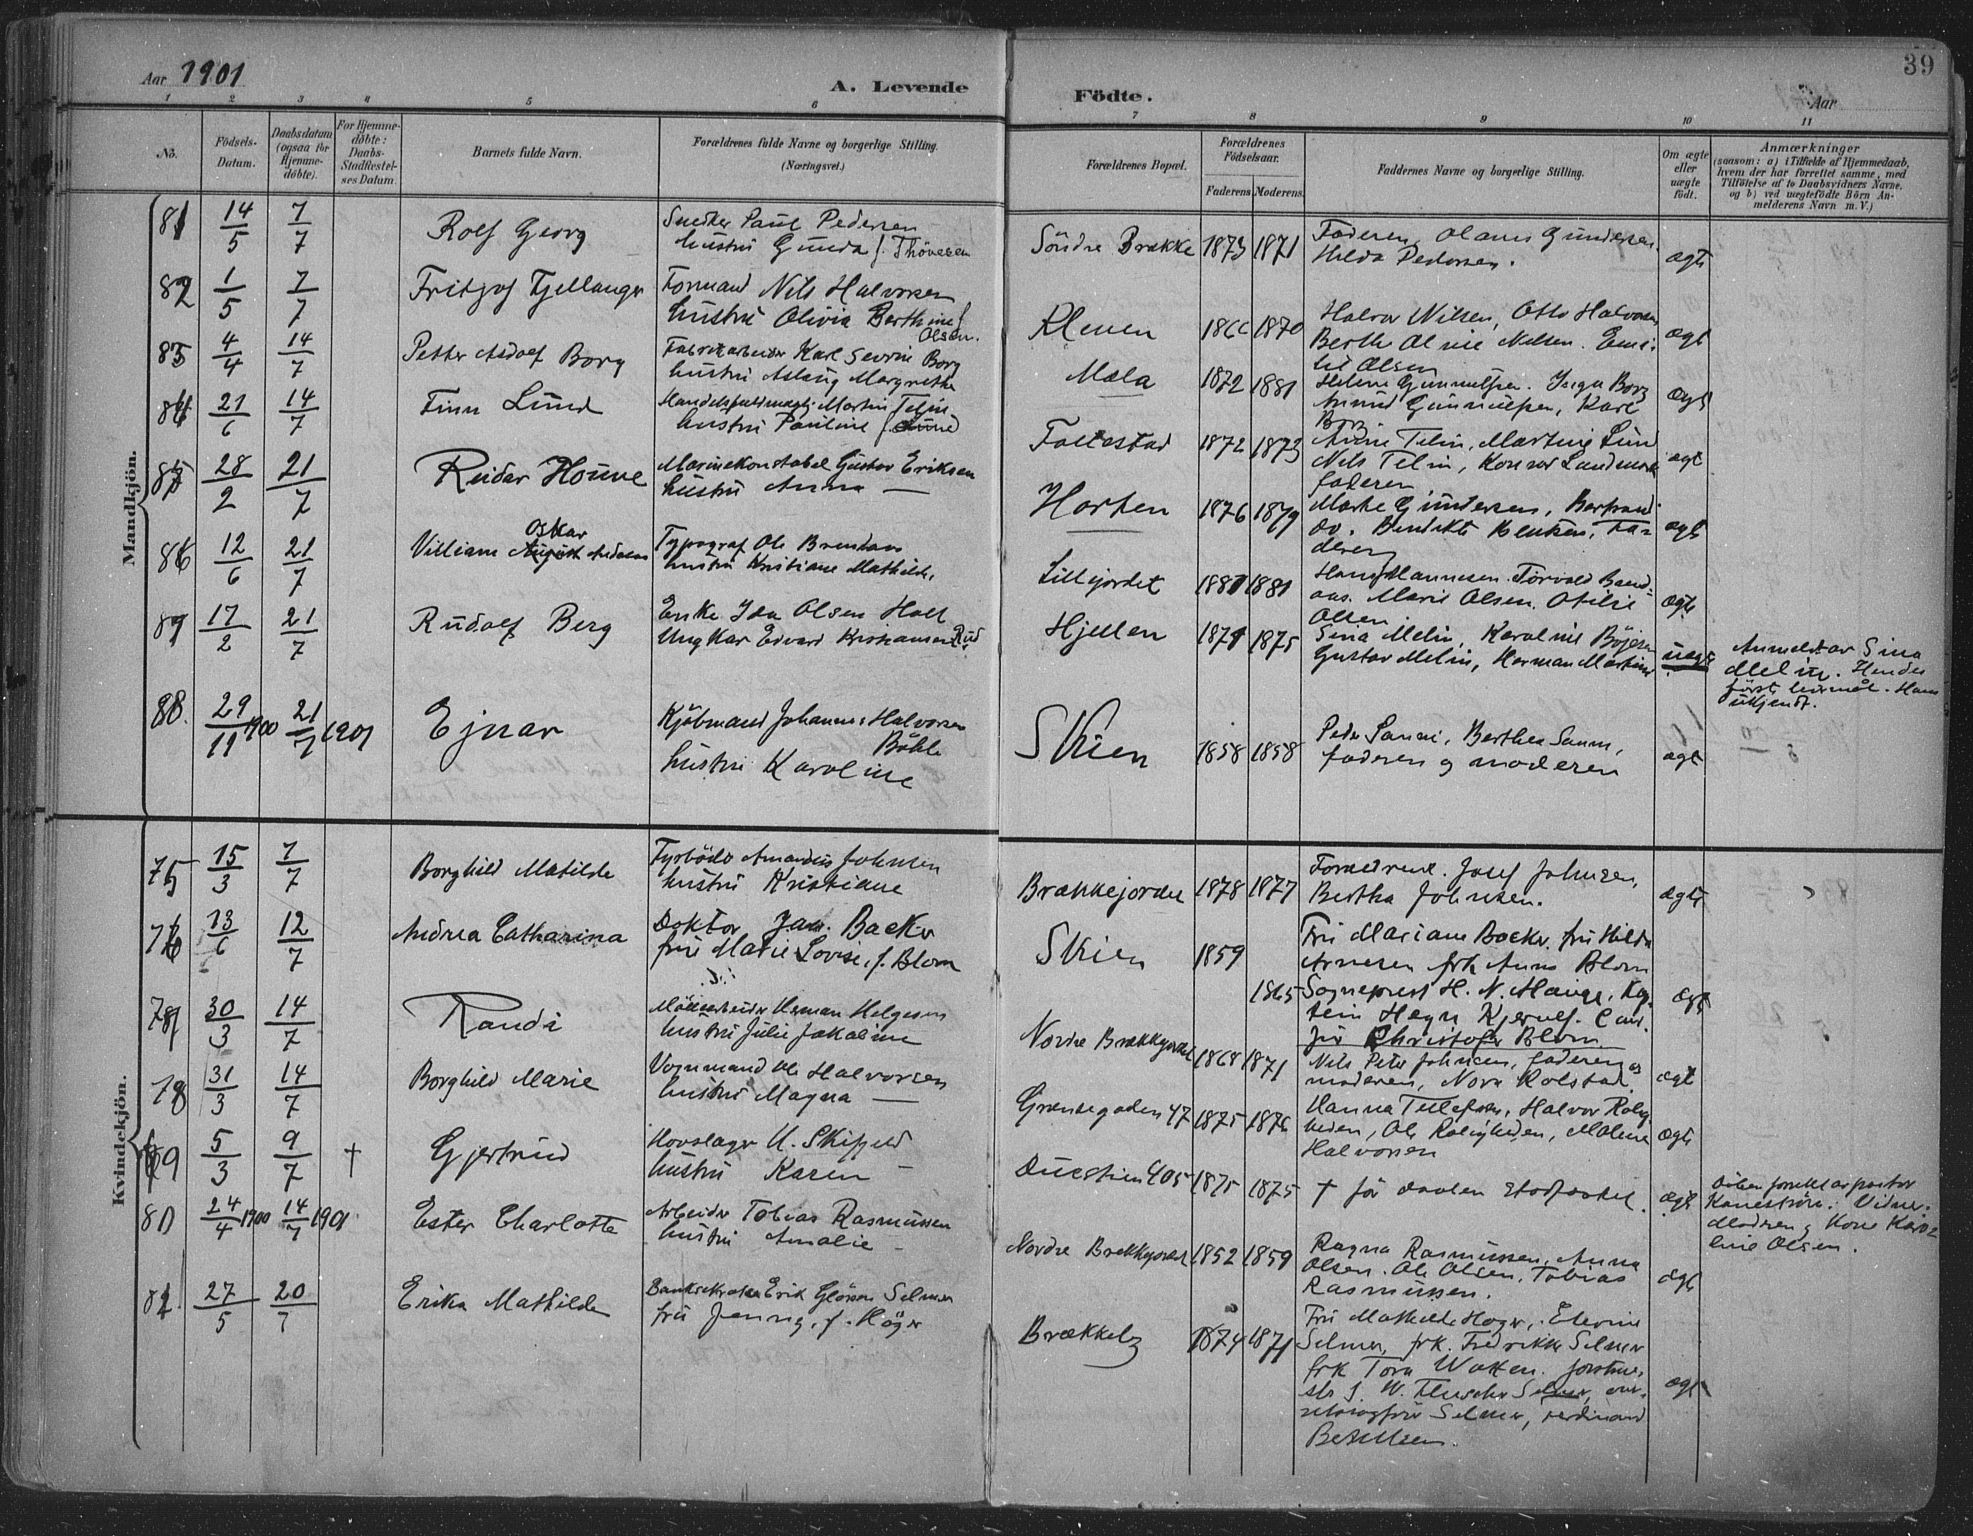 39
Aar 1901
A. Levende Födte.
Aar
1 2 3 4 5 6 7 8 9 10 11
No.
Födsels-Datum.
Daabsdatum (ogsaa for Hjemmedöbte).
For Hjemmedöbte: Daabs-Stadfæstelses Datum.
Barnets fulde Navn.
Forældrenes fulde Navne og borgerlige Stilling. (Næringsvei.)
Forældrenes Bopæl.
Forældrenes Födselsaar.
Faderens. Moderens.
Faddernes Navne og borgerlige Stilling.
Om ægte eller uægte födt.
Anmærkninger
(saasom: a) i Tilfælde af Hjemmedaab, hvem der har forrettet samme, med Tilföielse af to Daabsvidners Navne, og b) ved uægtefödte Börn Anmelderens Navn m. V.)
Mandkjön.
81 14/5 7/7 Rolf Georg
Snedker Paul Pedersen
hustru Gunda f. Thövesen
Söndre Brække 1873 1871
Faderen, Olaus Gundersen
Hilda Pedersen.
ægt
82 1/5 7/7 Fritjof Fjellanger
Formand Nils Halvorsen
hustru Olivia Berthine f
Olsen.
Kleven 1866 1870
Halvor Nilsen, Otto Halvorsen
Berthe Oline Nilsen. Emi-
lie Olsen
ægt
83 4/4 14/7 Petter Adolf Borg
Fabrikarbeider Karl Severin Borg
hustru Aslaug Margrethe
Mæla 1872 1881
Helene Gunnulfsen. Inga Borg
Amund Gunnulfsen, Karl
Borg
ægt
84 21/6 14/7 Finn Lund
Handelsfuldmægtig Martin Telin
hustru Pauline f. Lund
Falkestad 1872 1873
Anne Telin, Martine Lun
Nils Telin, Konrad Lundmark
faderen
ægt
85 28/2 21/7 Reidar Houne
Marinekonstabel Gustav Eriksen
hustru Anna —
Horten 1876 1879
Marthe Gundersen, Bertrand
do. Benedikte Bentsen, Fa-
deren
ægt
86 12/6 21/7 Villiam Oskar August
Typograf Ole Brendaas
hustru Kristiane Mathilde.
Lillejordet 1881 1881
Hans Hannesen. Torvald Brend-
aas. Marie Olsen. Otilie
Olsen
ægte
87 17/2 21/7 Rudolf Berg
Enke Ida Olsen Holt
Ungkar Edvard Kristiansen Rud
Hjellen 1871 1875
Sina Melin, Karoline Böjesen
Gustav Melin, Herman Martinse
uægte
Anmeldt av Sina
Melin. Hendes
först leiermål. Hans
ukjendt.
88. 29/11 1900 21/7 1901 Ejnar
Kjöbmand Johannes Halvorsen
Böhle
hustru Karoline
Skien 1858 1858
Peder Sanni, Berthea Sanni,
faderen og moderen
ægt
Kvindekjön.
75 15/3 7/7 Borghild Matilde
Fyrböder Amandus Johnsen
hustru Kristiane
Brækkejordet 1878 1877
Forældrene. Josef Johnsen,
Bertha Johnsen.
ægte
76 13/6 12/7 Andrea Catharina
Doktor Jan. Backer
frue Marie Lovise, f. Blom
Skien 1859 1865
Fru Mariane Backer, fru Hilda
Arnesen frk Anna Blom
Sogneprest H. N. Hauge, Kap-
tein Hagn Kjerulf. Cand.
jur Christofer Blom
ægt
77 30/3 14/7 Randi
Möllearbeider Herman Helgesen
hustru Julie Jakobine
Nordre Brækkejordet 1868 1871
Nils Peter Johnsen, faderen og
moderen, Nora Rolstad.
ægt
78 31/3 14/7 Borghild Marie
Vognmand Ole Halvorsen
hustru Magna —
Grændsegaden 47 1875 1876
Hanna Tellefsen, Halvor Rolig-
heden, Ole Roligheden, Malene
Halvorsen
ægte
79 5/3 9/7 † Gjertrud
Hovslager H. Skifjeld
hustru Karen —
Duestien 405 1875 1875
† för daaben stadfæstet.
ægt
Daaben forrettet av pastor
Kaneström. Vidner:
Modren og Kone Karo-
line Olsen.
80 24/4 1900 14/7 1901 Ester Charlotte
Arbeider Tobias Rasmussen
hustru Amalie —
Nordre Brekkejordet 1852 1859
Ragna Rasmussen, Anna
Olsen. Ole Olsen, Tobias
Rasmussen.
ægt
81. 27/5 20/7 Erika Mathilde
Banksekretær Erik Glörsen Selmer
fru Jenny, f. Höyer
Brækkeby 1874 1871
Fru Mathilde Höyer, Elevine
Selmer, frk. Fredrikke Selmer
frk Tora Watten.
Selmer,
Selmer, Ferdinand
Bertelsen.
ægt